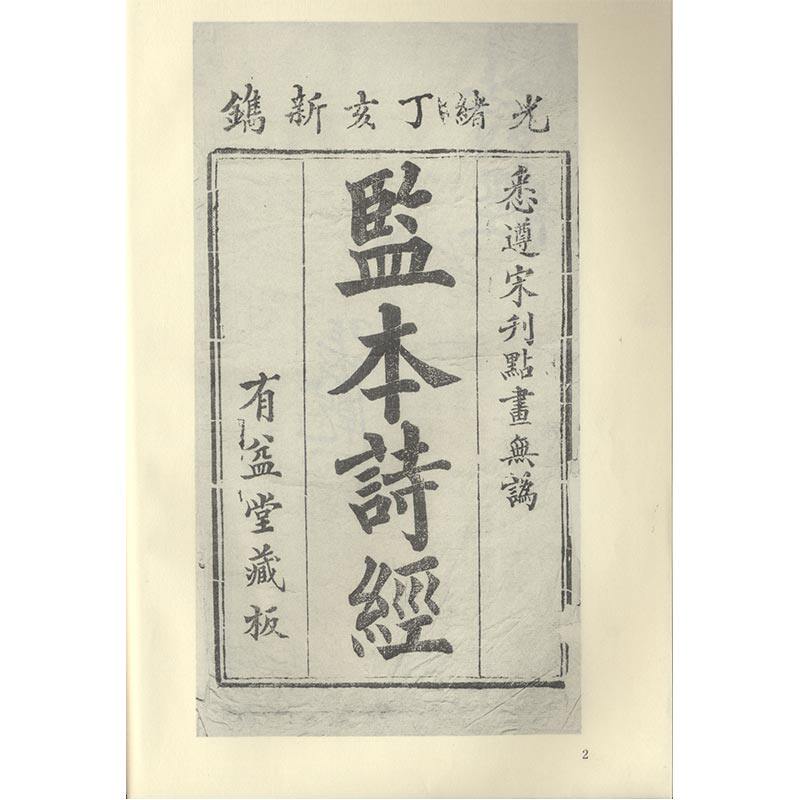 光緒丁亥新鐫
悉遵宋刊點畫無譌
監本詩經
有益堂藏板
2